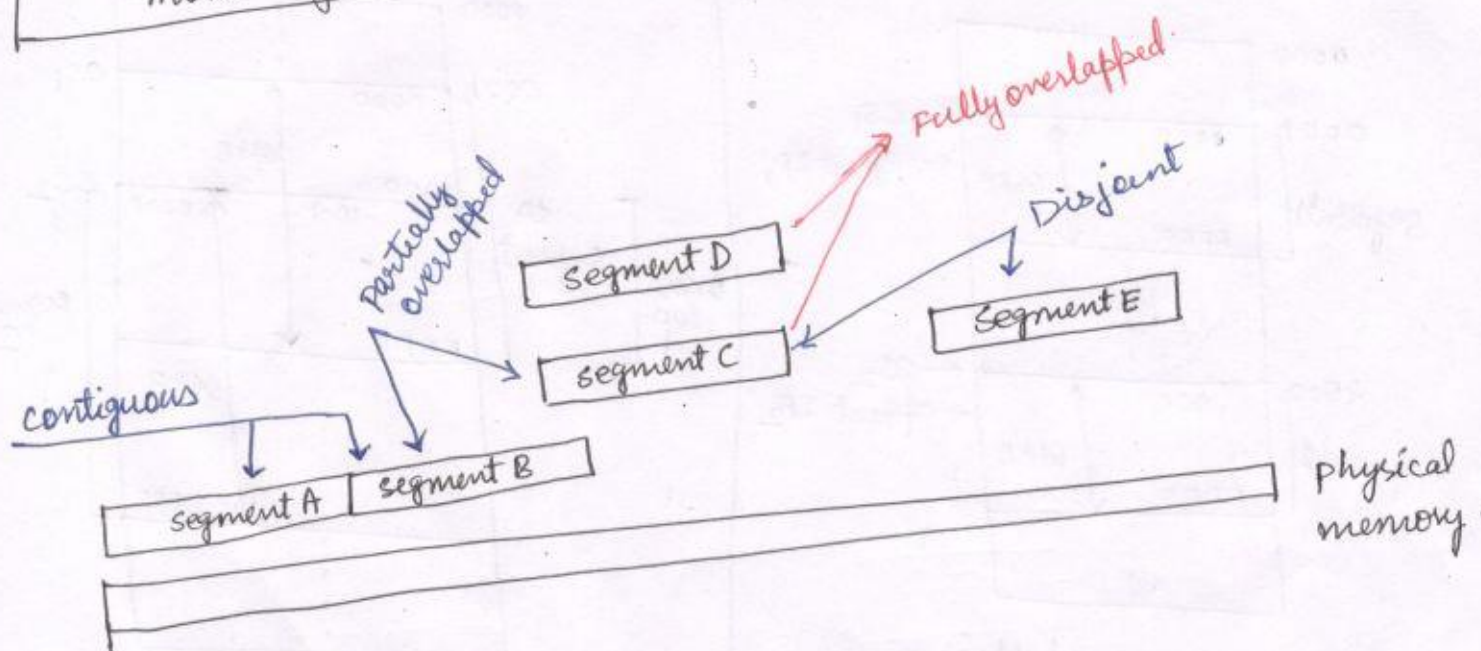 Fully overlapped.
Disjoint
Partially
overlapped
segment D
segment E
segment C
contiguous
segment A
segment B
physical
memory